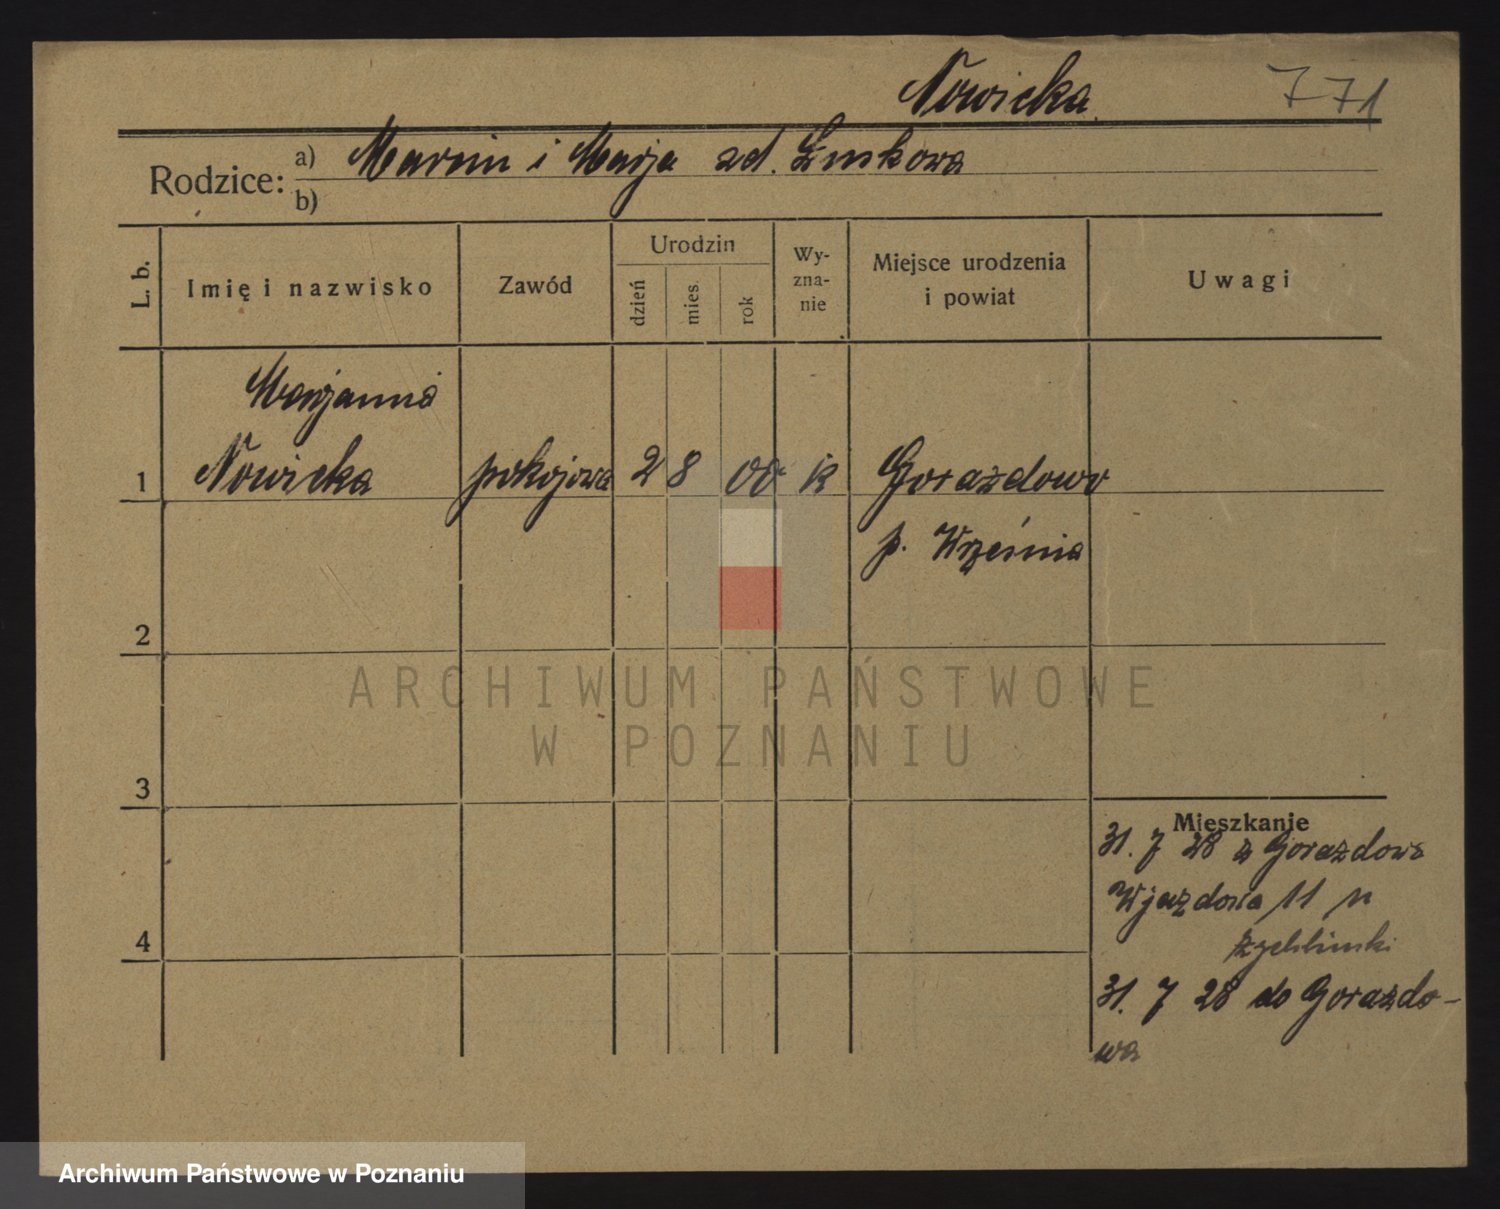 Nowicka
771
Rodzice: a) Marcin i Marja zd. Żukowa
b)
L. b.
Imię i nazwisko
Zawód
Urodzin
dzień
mies.
rok
Wy-
zna-
nie
Miejsce urodzenia
i powiat
Uwagi
Marjanna
1 Nowicka pokojowa 2 8 00 k Gorazdowo
p. Września
2
3
4
Mieszkanie
31. 7 28 z Gorazdowa
Wjazdowa 11 u
31. 7 28 do Gorazdo-
wa
ARCHIWUM PAŃSTWOWE
W POZNANIU
Archiwum Państwowe w Poznaniu